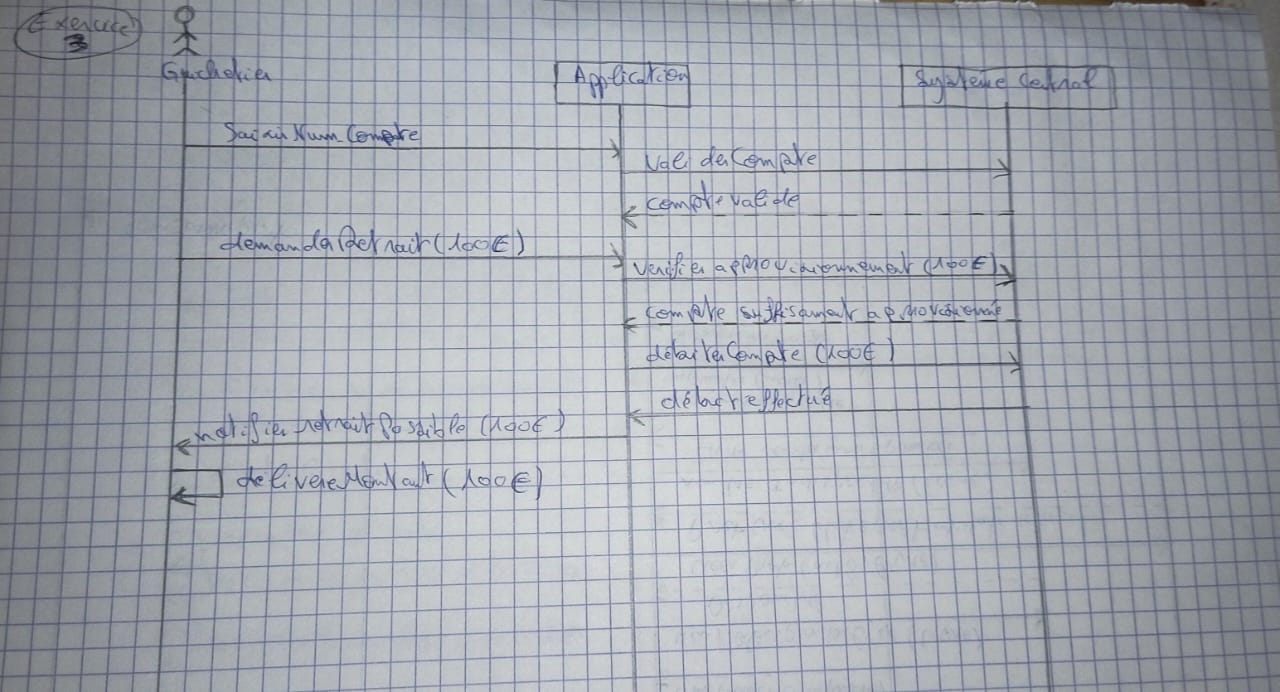 Exercice 3
Guichetier
Application
Système Central
SaisirNumCompte
validerCompte
compte valide
demanderRetrait(100€)
vérifier approvisionnement (100€)
compte suffisament approvisionné
débiterCompte (100€)
débit effectué
notifier retrait Possible (100€)
délivrerMontant (100€)